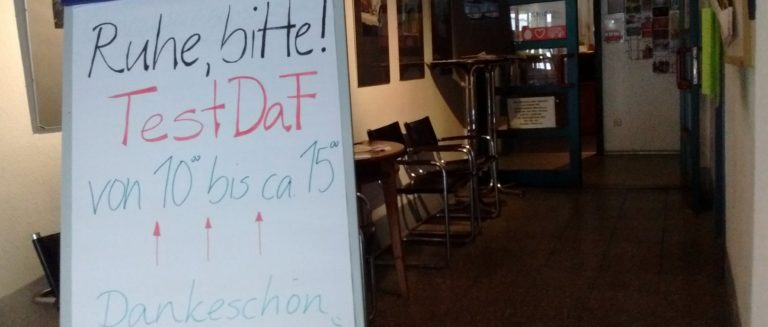 Ruhe, bitte!
TestDaF
von 10°° bis ca. 15°°
Dankeschön